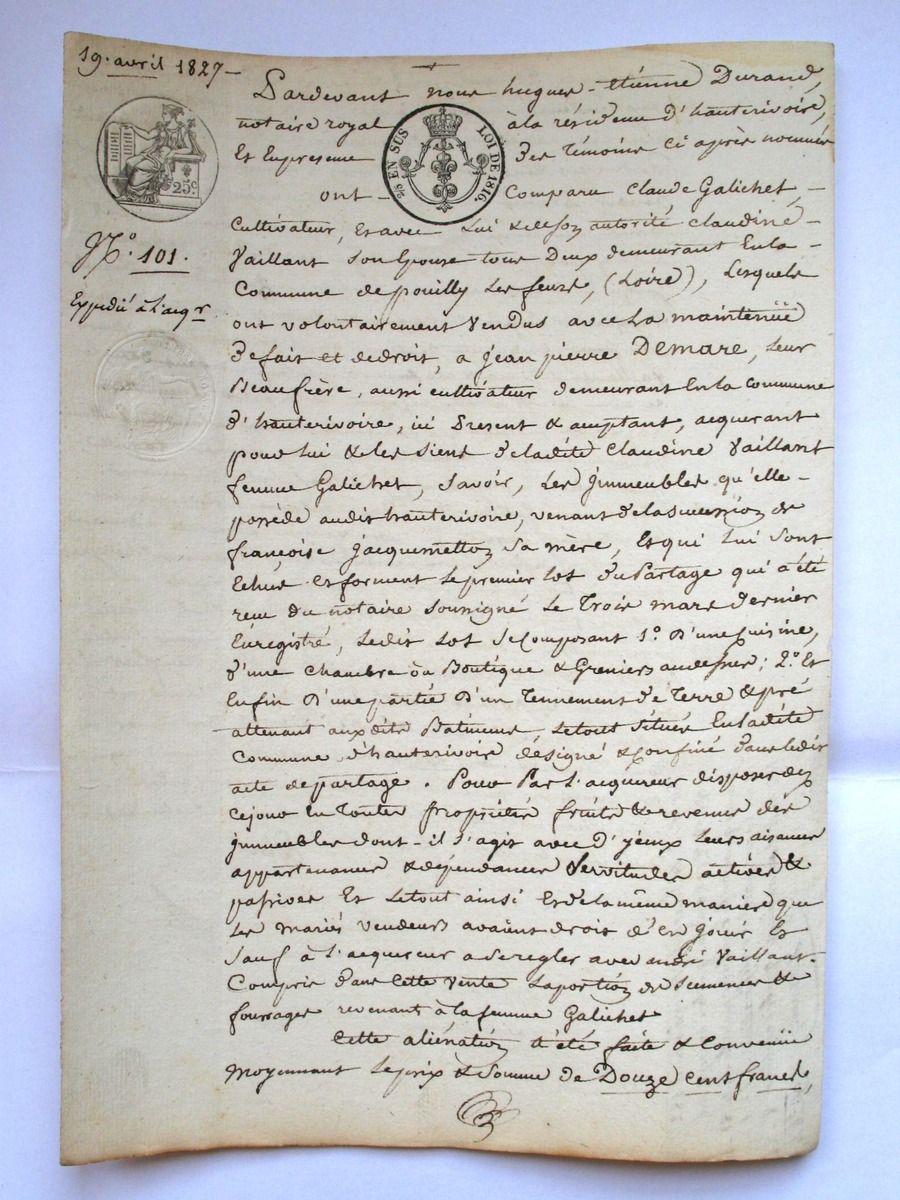 19. avril 1827 —
Pardevant nous hugues-étienne Durand,
notaire royal à la résidence d'hauterivoire,
Et En presence des témoins ci après nommés
25 EN SUS LOI DE 1816.
25c
ont – Comparu Claude Galichet, –
Cultivateur, Et avec Lui & de son autorité Claudine –
Vaillant son Epouse tous Deux demeurant En la –
Commune de pouilly Les feurs, (Loire), Lesquels
N.° 101.
Expédié à L'acqr
ont volontairement Vendus avec La maintenüe
De fait et de droit, a jean pierre DEMARE, Leur
Beaufrère, aussi cultivateur demeurant En la commune
d'hauterivoire, ici Present & acceptant, acquerant
pour Lui & les siens de ladite Claudine Vaillant
femme Galichet, Savoir, Les jmmeubles qu'elle –
possède audit hauterivoire, venant de la succession de
françoise jacquemetton Sa mère, Et qui lui sont
Echus Et forment Le premier lot du Partage qui a été
reçu du notaire soussigné Le Trois mars dernier
Enregistré, Ledit Lot se Composant 1.° D'une Cuisine,
d'une chambre ou Boutique & Greniers audessus; 2.° Et
Enfin D'une partie D'un Tennement de Terre & pré
attenant aux dits Batimens, Le tout situés En ladite
Commune d'hauterivoire designé & confiné dans ledit
acte de partage. Pour Par L'acquereur disposer dez
ce jour En Toutes propriétés fruits & revenus des
jmmeubles dont-il s'agit avec D'jeeux Leurs aisances
appartenances & dépendances Servitudes actives &
passives Et Le tout ainsi Et de la même maniere que
Les mariés vendeurs avaient droit d'en jouir Et
Sauf à L'acquereur a se regler avec andré Vaillant.
Compris dans Cette vente La portion de Semences &
fourrages revenant à la femme Galichet
Cette aliénation a été faite & Convenüe
Moyennant Le prix & Somme de Douze cent francs,